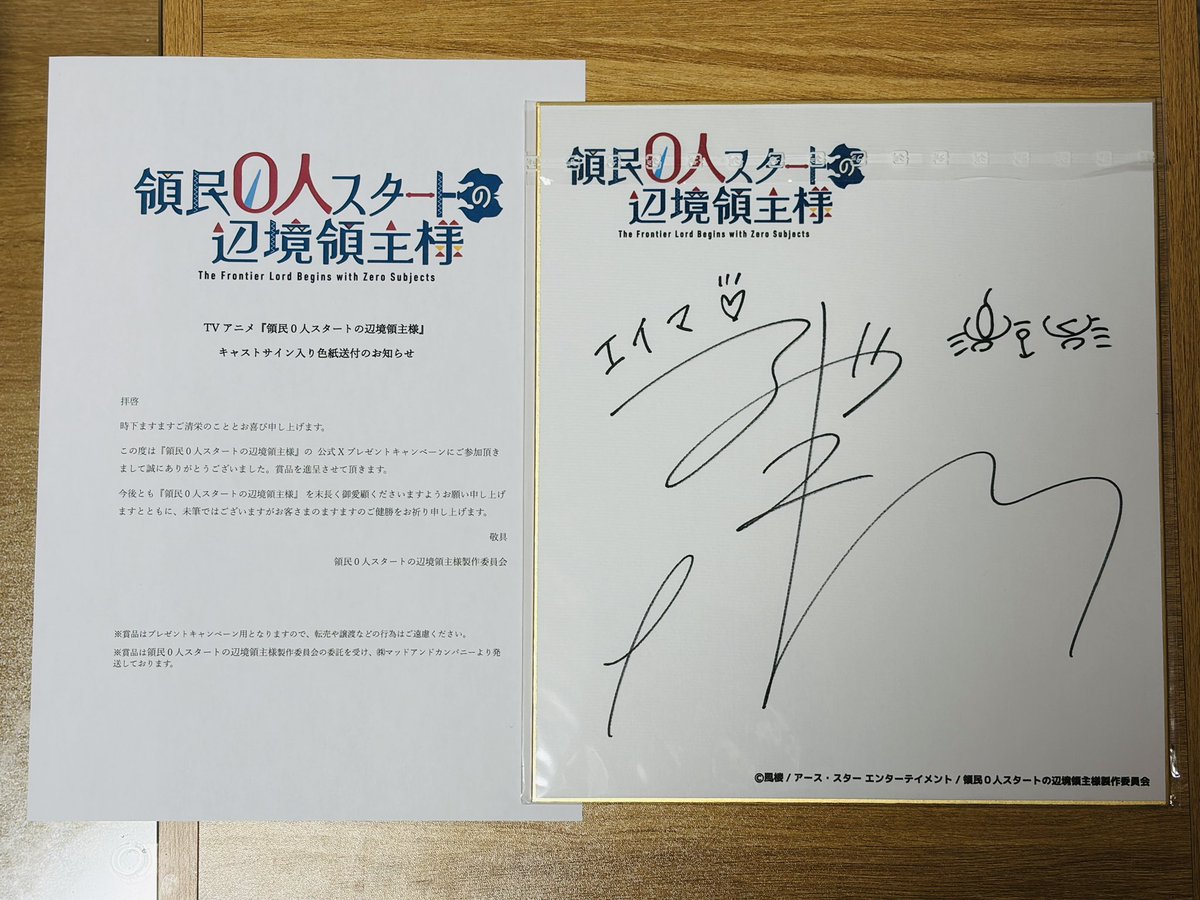 領民0人スタートの
辺境領主様
The Frontier Lord Begins with Zero Subjects
TVアニメ『領民0人スタートの辺境領主様』
キャストサイン入り色紙送付のお知らせ
拝啓
時下ますますご清栄のこととお喜び申し上げます。
この度は『領民0人スタートの辺境領主様』の 公式Xプレゼントキャンペーンにご参加頂き
まして誠にありがとうございました。賞品を進呈させて頂きます。
今後とも『領民0人スタートの辺境領主様』を末長く御愛顧くださいますようお願い申し上げ
ますとともに、末筆ではございますがお客さまのますますのご健勝をお祈り申し上げます。
敬具
領民0人スタートの辺境領主様製作委員会
※賞品はプレゼントキャンペーン用となりますので、転売や譲渡などの行為はご遠慮ください。
※賞品は領民0人スタートの辺境領主様製作委員会の委託を受け、㈱マッドアンドカンパニーより発
送しております。
領民0人スタートの
辺境領主様
The Frontier Lord Begins with Zero Subjects
エイマ
©風楼 / アース・スター エンターテイメント / 領民0人スタートの辺境領主様製作委員会